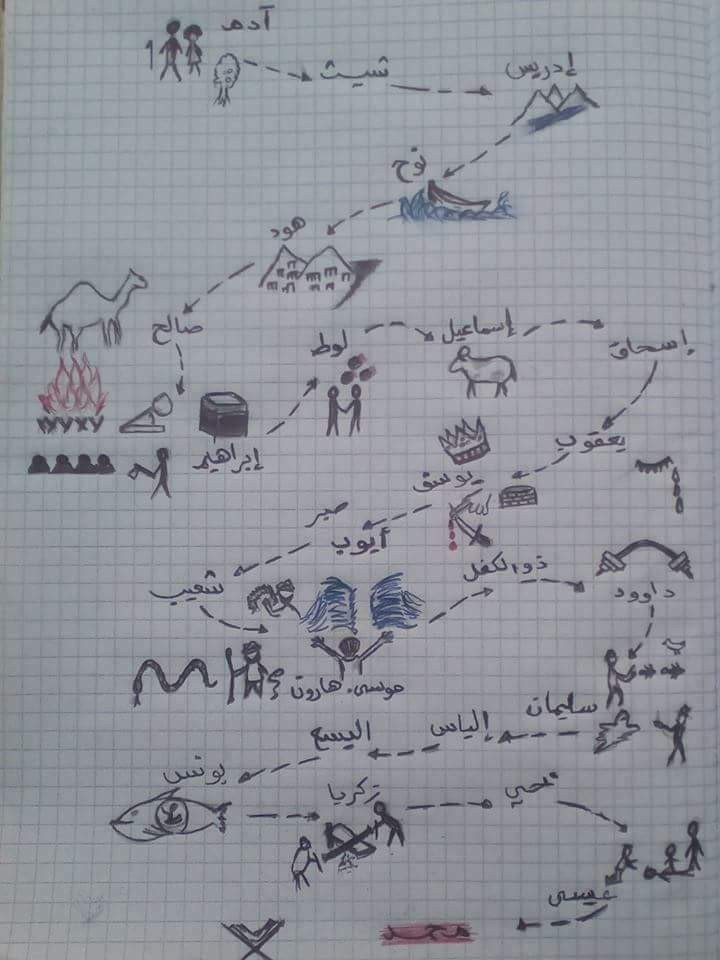 آدم
شيث
إدريس
نوح
هود
صالح
إبراهيم
لوط
إسماعيل
إسحاق
يعقوب
يوسف
صبر
أيوب
شعيب
موسى، هارون
ذو الكفل
داوود
سليمان
إلياس
اليسع
يونس
زكريا
يحيى
عيسى
محمد